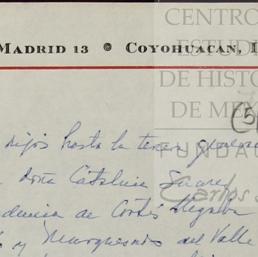 CENTRO
ESTUDI
MADRID 13 ● COYOHUACAN, I
DE HISTO
DE MÉX
(5
hijos hasta la tercera genera
FUNDAC
doña Catalina Suarez
Carlos S
de Cortés llegaba
y Marquesado del Valle